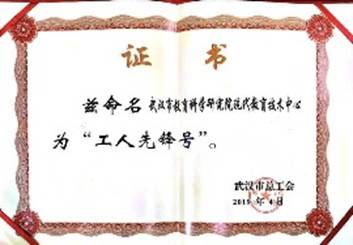 证书
兹命名武汉市教育科学研究院现代教育技术中心
为“工人先锋号”。
武汉市总工会
2015年4月